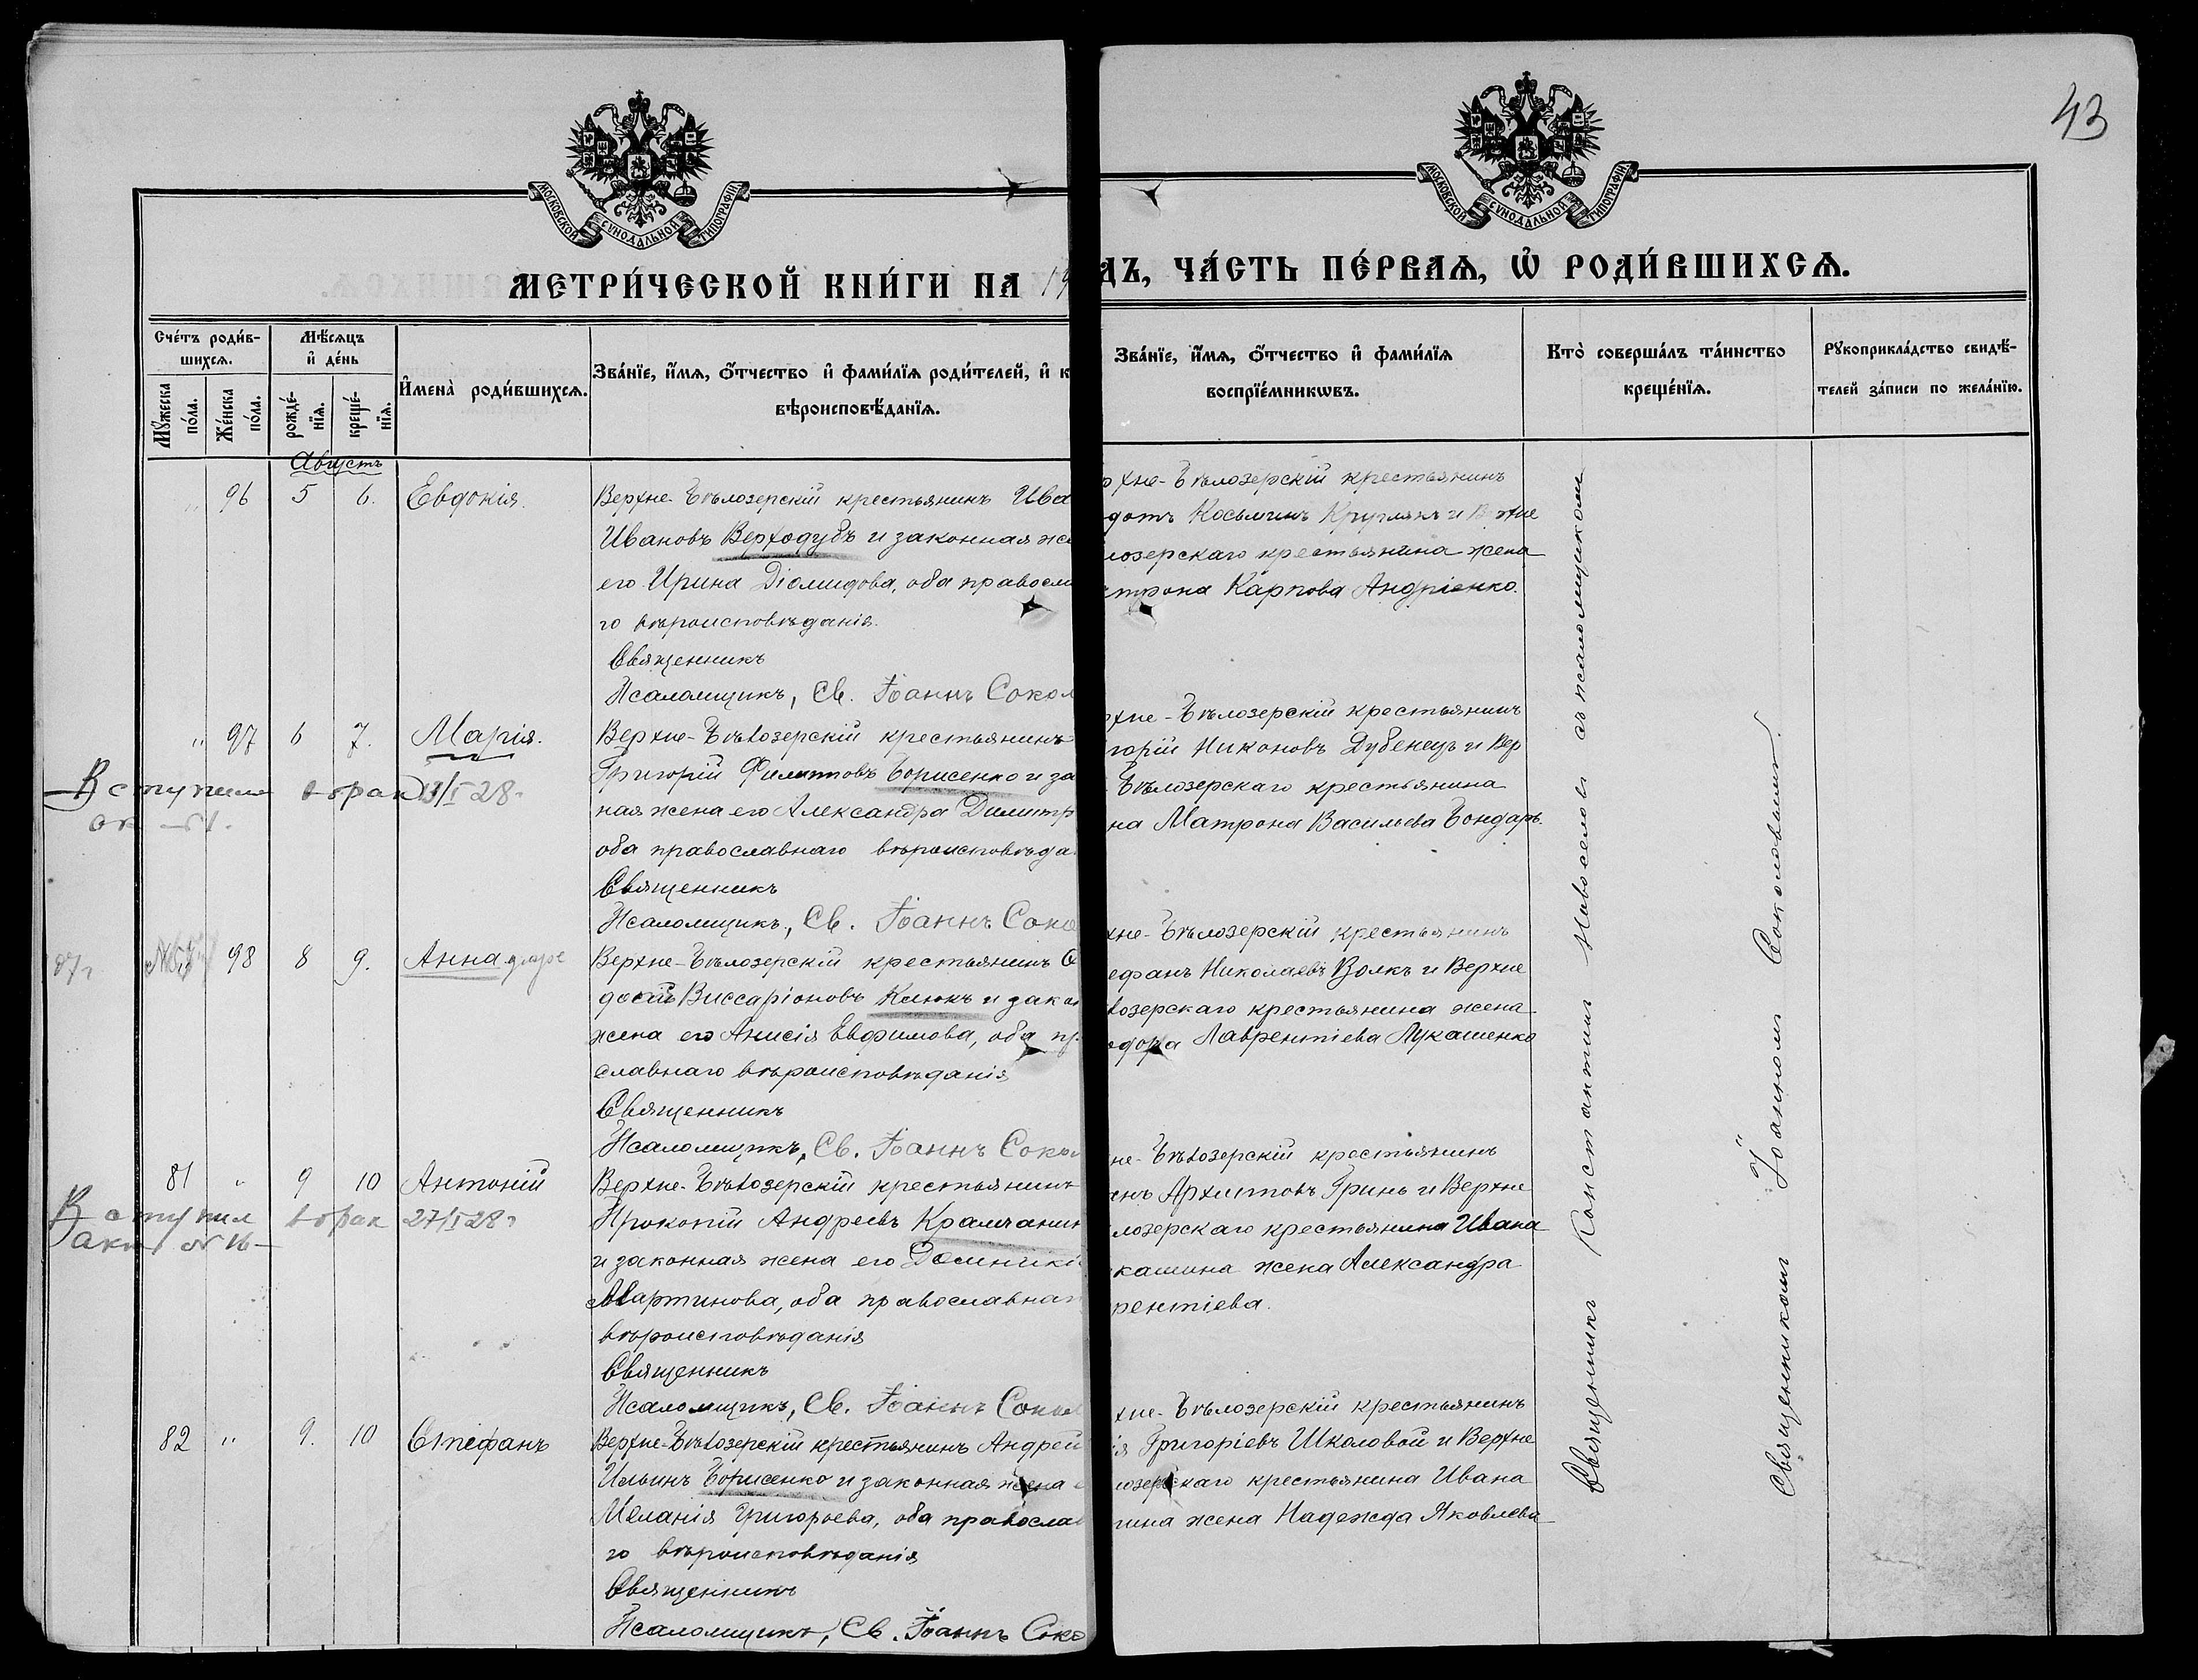 43
МОСКОВСКОЙ СѴНОДАЛЬНОЙ ТИПОГРАФІИ
МОСКОВСКОЙ СѴНОДАЛЬНОЙ ТИПОГРАФІИ
МЕТРИ́ЧЕСКОЙ КНИ́ГИ НА 19
ДЪ, ЧА́СТЬ ПЕ́РВАѦ, Ѡ҆ РОДИ́ВШИХСѦ.
Сче́тъ роди́в-
шихсѧ.
Мꙋ́жеска по́ла.
Же́нска по́ла.
Мѣ́сѧцъ
и҆ де́нь
рожде́-
нїѧ.
креще́-
нїѧ.
И҆мена̀ роди́вшихсѧ.
Зва́нїе, и҆́мѧ, ѻ҆́тчество и҆ фами́лїѧ роди́телей, и҆ к
вѣроисповѣ́данїѧ.
Зва́нїе, и҆́мѧ, ѻ҆́тчество и҆ фами́лїѧ
воспрїе́мникѡвъ.
Кто̀ соверша́лъ та́инство
креще́нїѧ.
Рꙋкоприкла́дство свидѣ́-
телей за́писи по жела́нїю.
Августъ
" 96 5 6. Евдокія.
Верхне-Бѣлозерскій крестьянинъ Ива
Ивановъ Верходубъ и законная же
его Ирина Діомидова, оба правосла
го вѣроисповѣданія.
Священникъ
Псаломщикъ, Св. Іоаннъ Сокол
рхне-Бѣлозерскій крестьянинъ
дотъ Косьминъ Круглякъ и Верхне
лозерскаго крестьянина жена
трона Карпова Андріенко.
" 97 6 7. Марія.
Вступила в брак 13/I 28г
Верхне-Бѣлозерскій крестьянинъ
Григорій Филипповъ Борисенко и за
ная жена его Александра Димитр
оба православнаго вѣроисповѣда
Священникъ
Псаломщикъ, Св. Іоаннъ Соко
рхне-Бѣлозерскій крестьянинъ
горій Никоновъ Дубенецъ и Вер
Бѣлозерскаго крестьянина
на Матрона Васильева Бондарь.
98 8 9. Анна
Верхне-Бѣлозерскій крестьянинъ Ѳ
досій Виссаріоновъ Клюкъ и закон
жена его Анисія Евфимова, оба пр
славнаго вѣроисповѣданія
Священникъ
Псаломщикъ, Св. Іоаннъ Сокол
хне-Бѣлозерскій крестьянинъ
ефанъ Николаевъ Волкъ и Верхне
лозерскаго крестьянина жена
одора Лаврентіева Лукашенко
81 " 9 10 Антоній
Вступил в брак 27/I 28г
акт № 16
Верхне-Бѣлозерскій крестьянинъ
Прокопій Андреевъ Крамчанин
и законная жена его Домникі
Мартинова, оба православнаг
вѣроисповѣданія
Священникъ
Псаломщикъ, Св. Іоаннъ Сокол
не-Бѣлозерскій крестьянинъ
нъ Архиповъ Гринь и Верхне
лозерскаго крестьянина Ивана
кашина жена Александра
рентіева.
82 " 9. 10 Стефанъ
Верхне-Бѣлозерскій крестьянинъ Андрей
Ильинъ Борисенко и законная жена е
Меланія Григорьева, оба православ
го вѣроисповѣданія
Священникъ
Псаломщикъ, Св. Іоаннъ Соко
хне-Бѣлозерскій крестьянинъ
ія Григоріевъ Школовой и Верхне
лозерскаго крестьянина Ивана
гина жена Надежда Яковлева
Священникъ Константинъ Новоселовъ съ псаломщикомъ
Священникомъ Іоанномъ Соколовымъ.